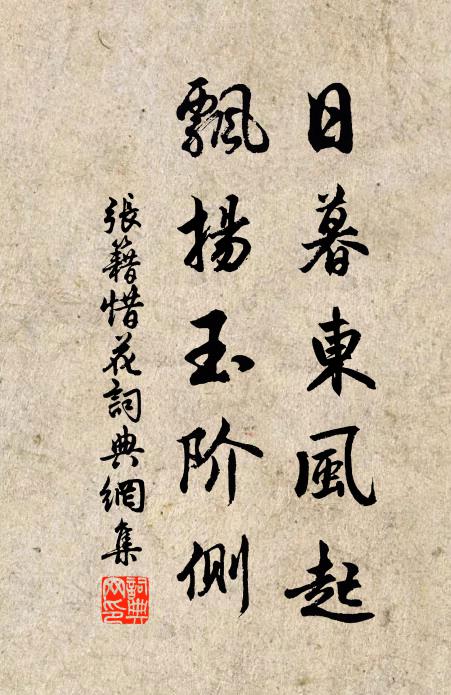 日暮東風起
飄揚玉阶側
張籍惜花詞典網集
詞典网印